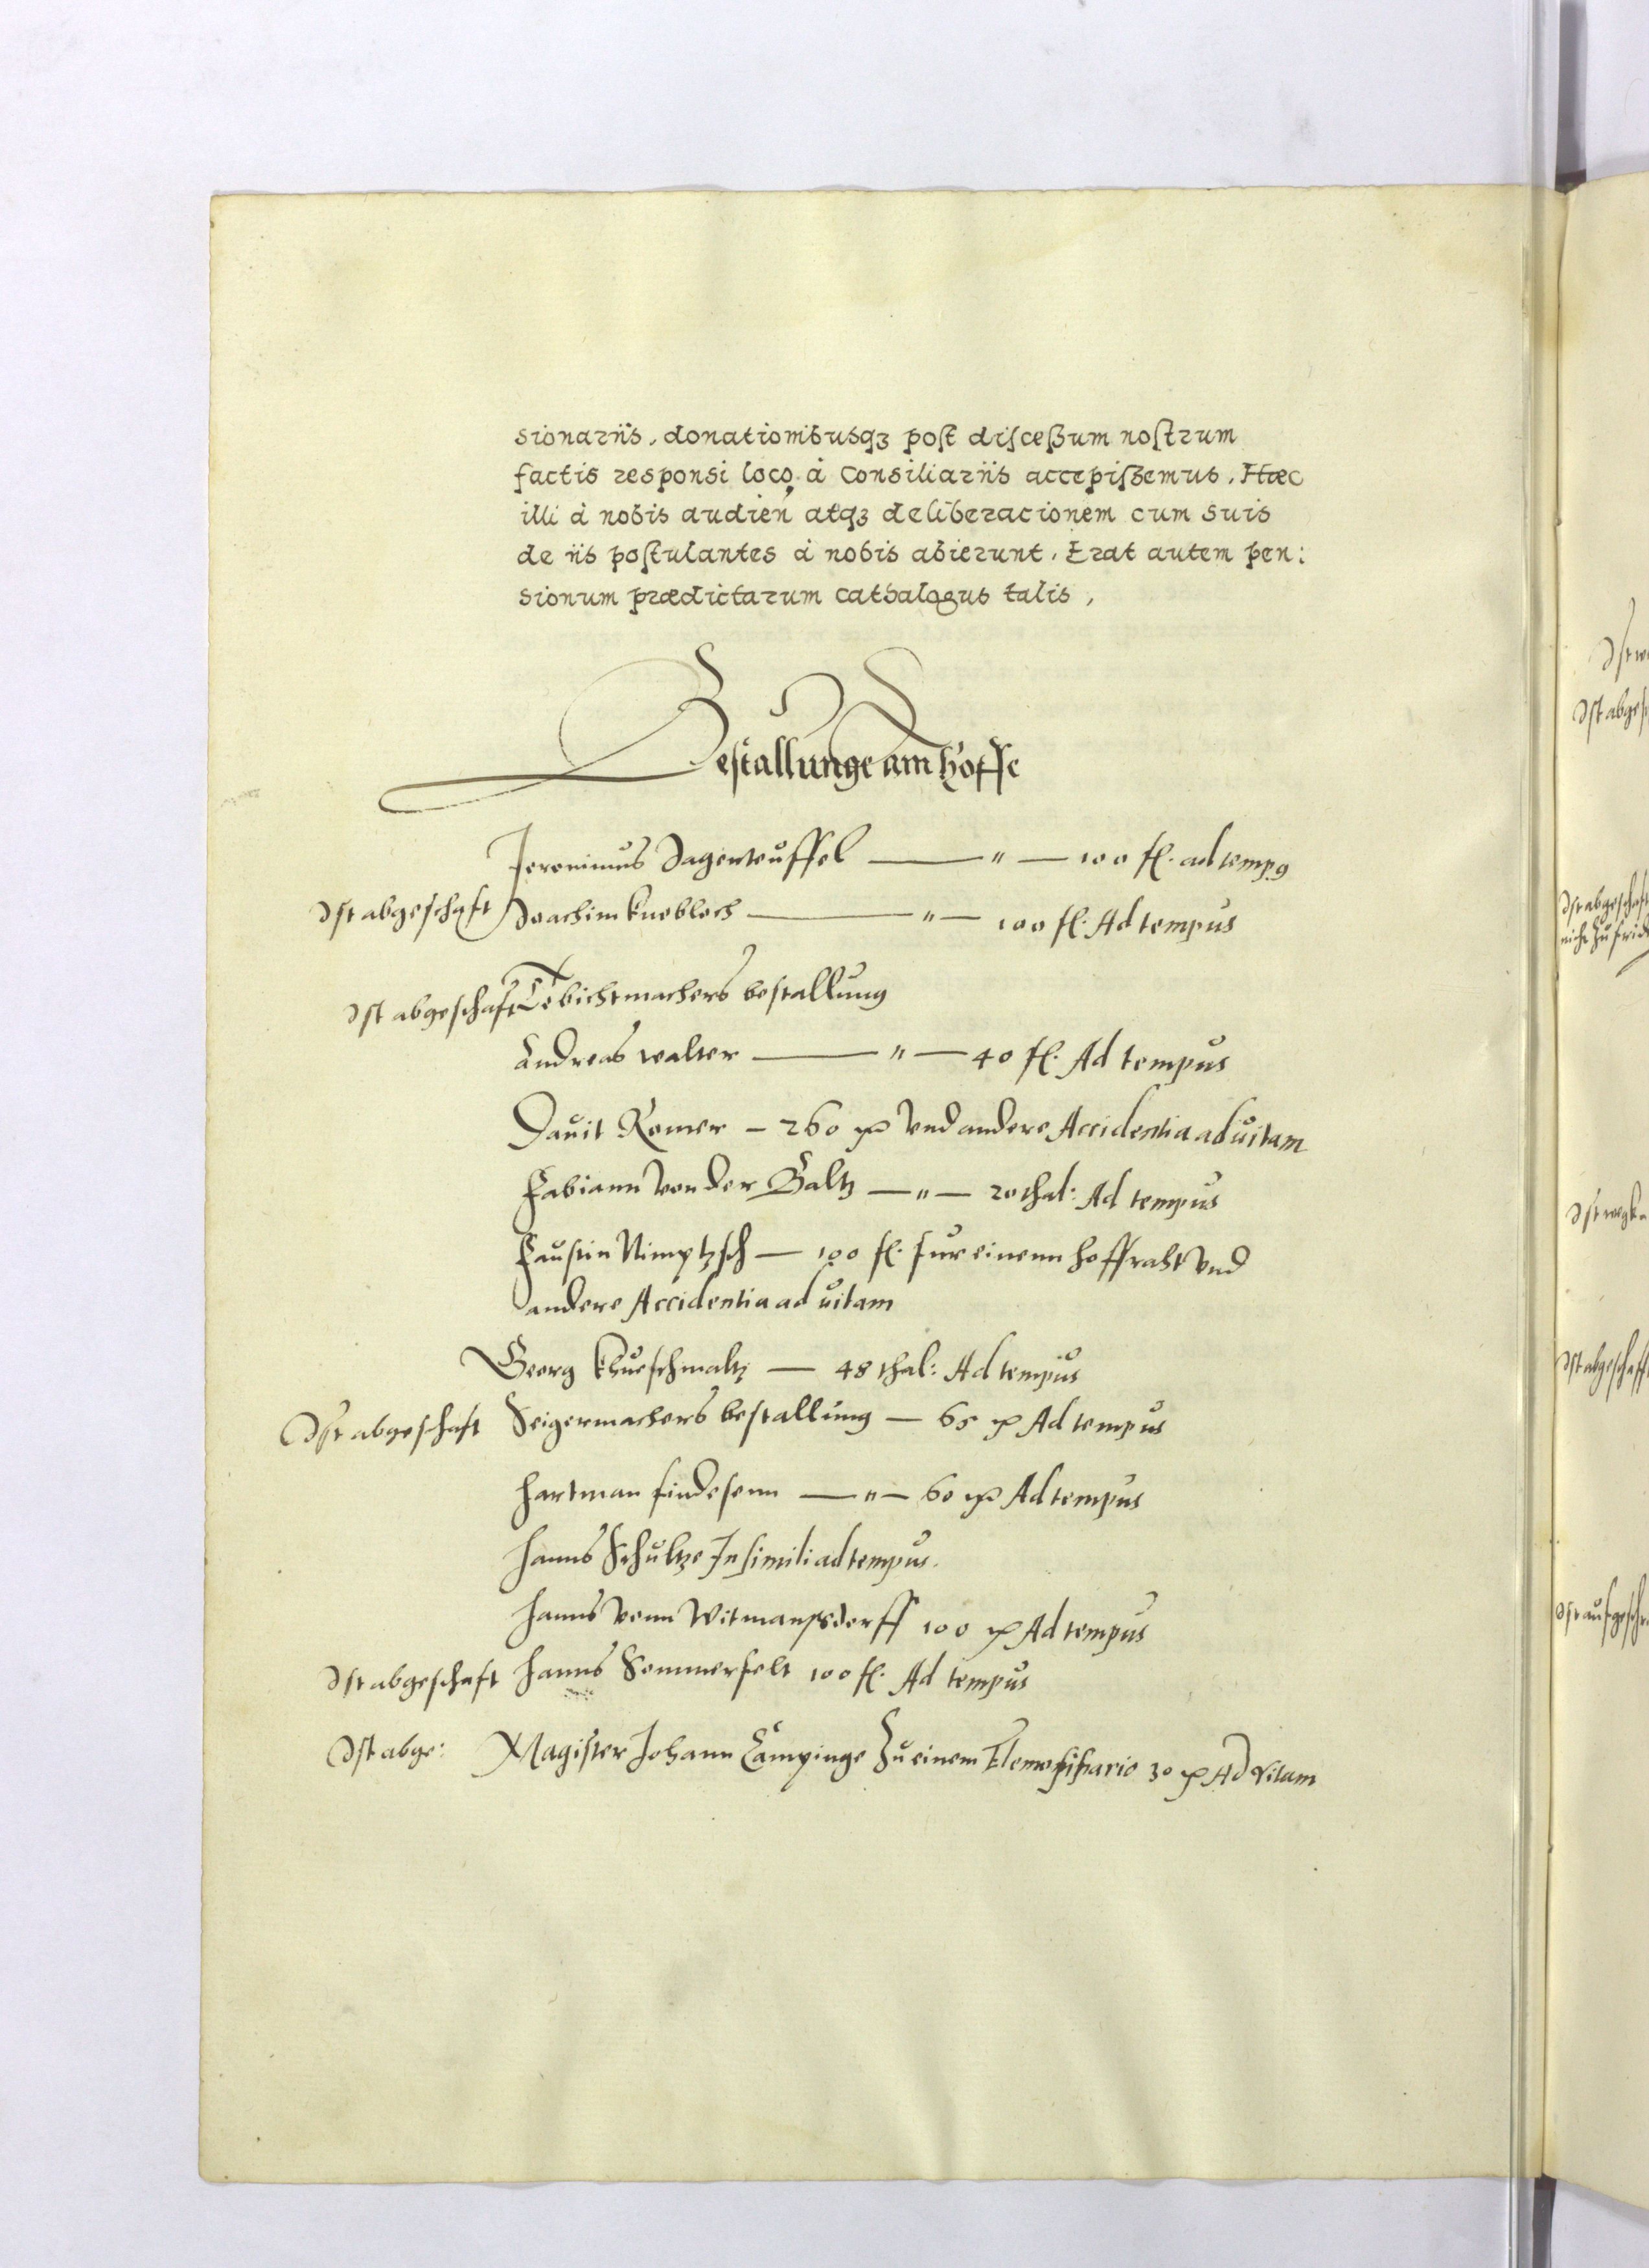 sionariis, donationibusqꝫ post discessum nostrum
factis responsi loco à Consiliariis accepissemus. Hæc
illi à nobis audien atqꝫ deliberacionem cum suis
de iis postulantes à nobis abierunt. Erat autem pen:
sionum prædictarum cathalogus talis,
Bestallunge am hoffe
Jeronimus Dagenteuffel — " — 100 fl. ad tempꝰ
Ist abgeschaft Joachim knebloch — " — 100 fl. Ad tempus
Ist abgeschaft Tebichtmachers bestallung
Andreas walter — " — 40 fl. Ad tempus
Dauit Romer — 260 mk vnd andere Accidentia ad uitam
Fabiann von der Baltz — " — 20 thal: Ad tempus
Faustin Nimptzsch — 100 fl. fur einenn hoffraht vnd
andere Accidentia ad uitam
Georg khueschmaltz — 48 thal: Ad tempus
Ist abgeschaft Seigermachers bestallung — 65 mk Ad tempus
Hartman findesenn — " — 60 mk Ad tempus
Hanns Schultze In simili ad tempus.
Hanns vonn Witmanssdorff 100 mk Ad tempus
Ist abgeschaft Hanns Sommerfelt 100 fl. Ad tempus
Ist abge: Magister Johann Campinge zu einem Elemosinario 30 mk Ad vitam
Ist abgeschaft